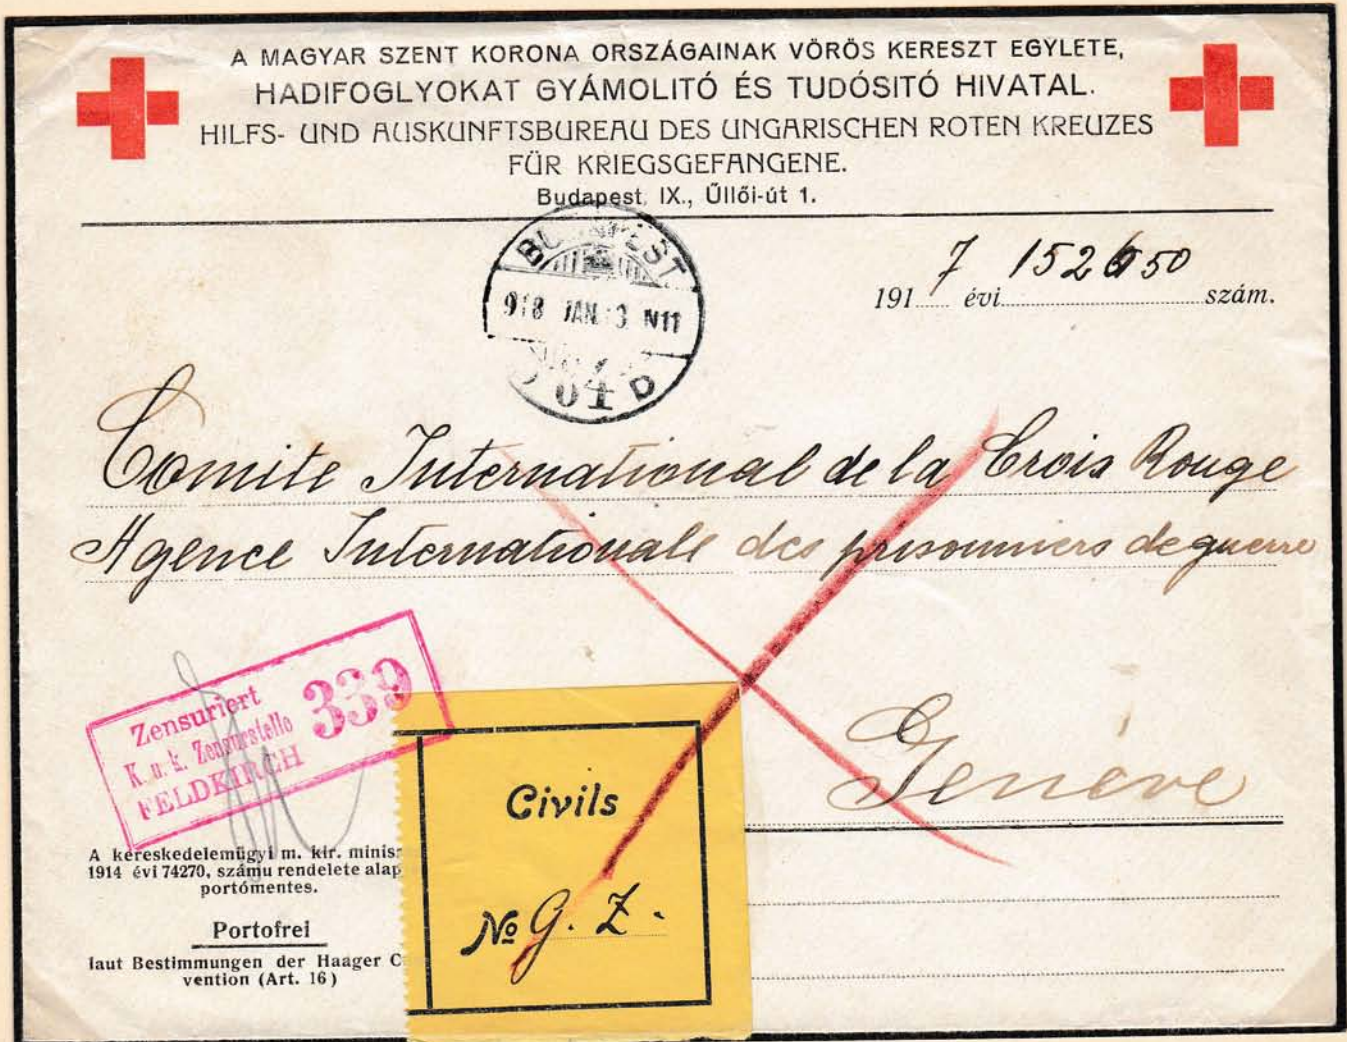 A MAGYAR SZENT KORONA ORSZÁGAINAK VÖRÖS KERESZT EGYLETE,
HADIFOGLYOKAT GYÁMOLITÓ ÉS TUDÓSITÓ HIVATAL.
HILFS- UND AUSKUNFTSBUREAU DES UNGARISCHEN ROTEN KREUZES
FÜR KRIEGSGEFANGENE.
Budapest, IX., Üllői-út 1.
BUDAPEST
918 JAN. 3 N11
04 D
1917 évi 152650 szám.
Comite International de la Crois Rouge
Agence Internationale des prisonniers de guerre
Genève
Zensuriert
K. u. k. Zensurstelle 339
FELDKIRCH
Civils
No G. Z.
A kereskedelemügyi m. kir. minis
1914 évi 74270, számu rendelete alap
portómentes.
Portofrei
laut Bestimmungen der Haager C
vention (Art. 16)